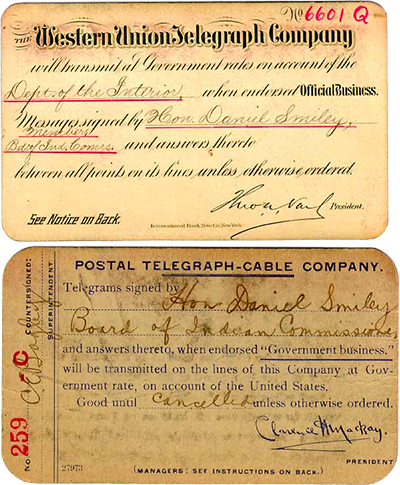 No 6601 Q
THE Western Union Telegraph Company
will transmit at Government rates on account of the
Dept. of the Interior, when endorsed Official Business.
Messages signed by Hon. Daniel Smiley,
Member
Bd. of Ind. Comrs. and answers thereto
between all points on its lines, unless otherwise ordered.
President.
See Notice on Back.
International Bank Note Co. New York
POSTAL TELEGRAPH-CABLE COMPANY.
Telegrams signed by Hon Daniel Smiley
Board of Indian Commissioners
and answers thereto, when endorsed "Government business."
will be transmitted on the lines of this Company at Gov-
ernment rate, on account of the United States.
Good until Cancelled unless otherwise ordered.
Clarence H Mackay.
PRESIDENT
27973
(MANAGERS: SEE INSTRUCTIONS ON BACK.)
No 259
COUNTERSIGNED:
SUPERINTENDENT